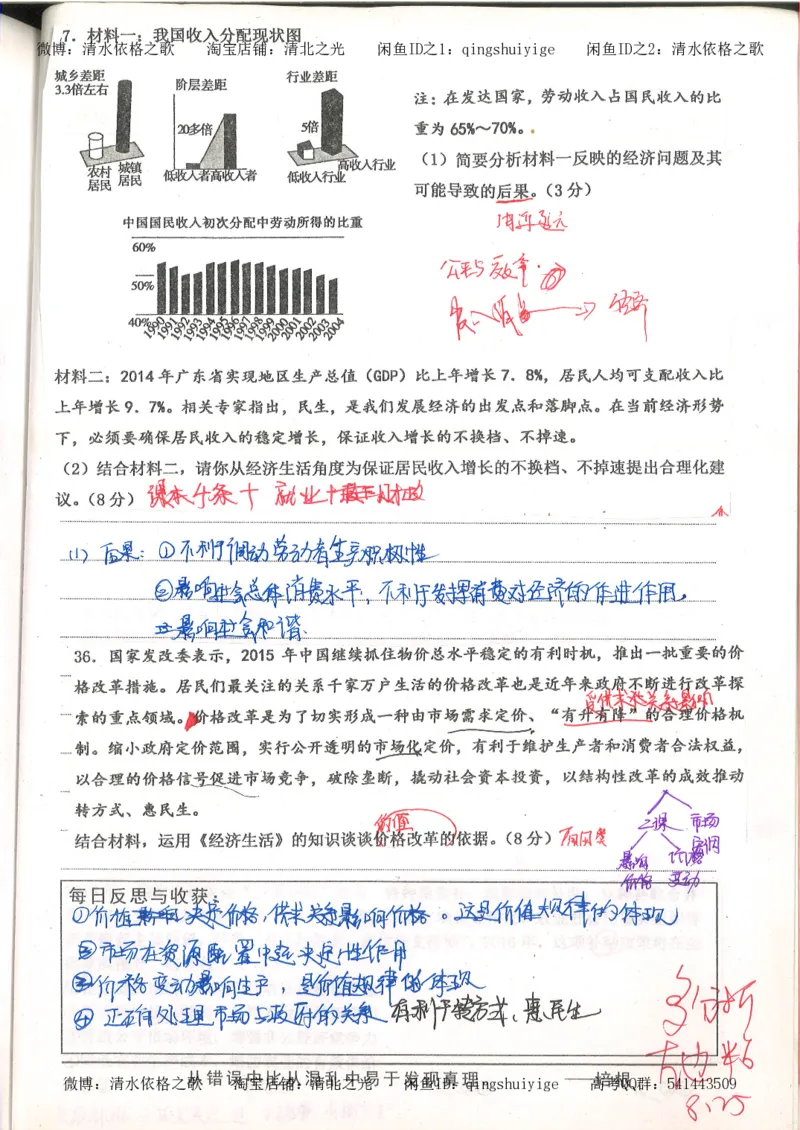 7. 材料一：我国收入分配现状图
微博：清水依格之歌 淘宝店铺：清北之光 闲鱼ID之1：qingshuiyige 闲鱼ID之2：清水依格之歌
城乡差距
3.3倍左右
农村居民 城镇居民
阶层差距
20多倍
低收入者高收入者
行业差距
5倍
低收入行业 高收入行业
注：在发达国家，劳动收入占国民收入的比
重为 65%～70%。
（1）简要分析材料一反映的经济问题及其
可能导致的后果。（3 分）
公平与效率
中国国民收入初次分配中劳动所得的比重
60%
50%
40%
1990 1991 1992 1993 1994 1995 1996 1997 1998 1999 2000 2001 2002 2003 2004
材料二：2014 年广东省实现地区生产总值（GDP）比上年增长 7．8%，居民人均可支配收入比
上年增长 9．7%。相关专家指出，民生，是我们发展经济的出发点和落脚点。在当前经济形势
下，必须要确保居民收入的稳定增长，保证收入增长的不换档、不掉速。
（2）结合材料二，请你从经济生活角度为保证居民收入增长的不换档、不掉速提出合理化建
议。（8 分） 课本4条+就业+
(1) 后果：①不利于调动劳动者生产积极性
②影响社会总体消费水平，不利于发挥消费对经济的促进作用。
③影响社会和谐.
36．国家发改委表示，2015 年中国继续抓住物价总水平稳定的有利时机，推出一批重要的价
格改革措施。居民们最关注的关系千家万户生活的价格改革也是近年来政府不断进行改革探
受供求关系影响
索的重点领域。价格改革是为了切实形成一种由市场需求定价、“有升有降”的合理价格机
制。缩小政府定价范围，实行公开透明的市场化定价，有利于维护生产者和消费者合法权益，
以合理的价格信号促进市场竞争，破除垄断，撬动社会资本投资，以结构性改革的成效推动
转方式、惠民生。
结合材料，运用《经济生活》的知识谈谈价格改革的依据。（8 分）
二课 市场
影响价格
变动
每日反思与收获：
①价值决定价格，供求关系影响价格。这是价值规律的体现
②市场在资源配置中起决定性作用
③价格变动影响生产，是价值规律的体现
④正确处理市场与政府的关系 有利于转方式、惠民生
多分析
材料
8.25
从错误中比从混乱中易于发现真理。 ——培根
微博：清水依格之歌 淘宝店铺：清北之光 闲鱼ID：qingshuiyige 高考QQ群：541443509